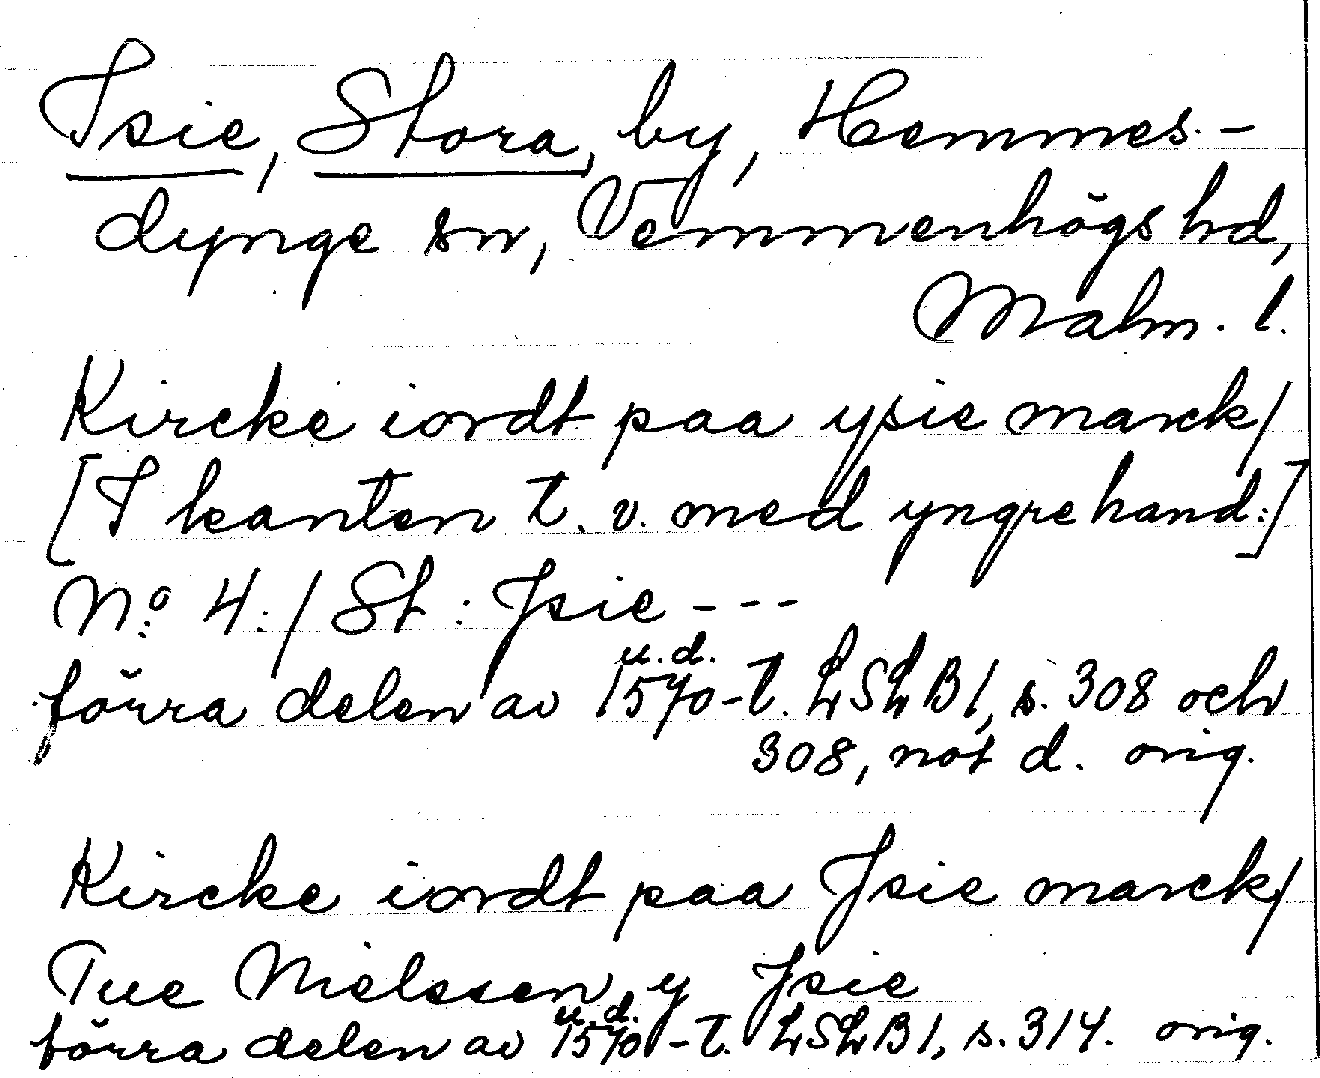 Isie, Stora, by, Hemmes-
dynge sn, Vemmenhögs hd,
Malm. l.
Kircke iordt paa ysie marck/
[I kanten t. v. med yngre hand:]
No: 4:/ St: Jsie ---
u. d.
förra delen av 1570-t. LSLB1, s. 308 och
308, not d. orig.
Kircke iordt paa Jsie marck/
Tue Nielssen y Jsie
u. d.
förra delen av 1570-t. LSLB1, s. 314. orig.